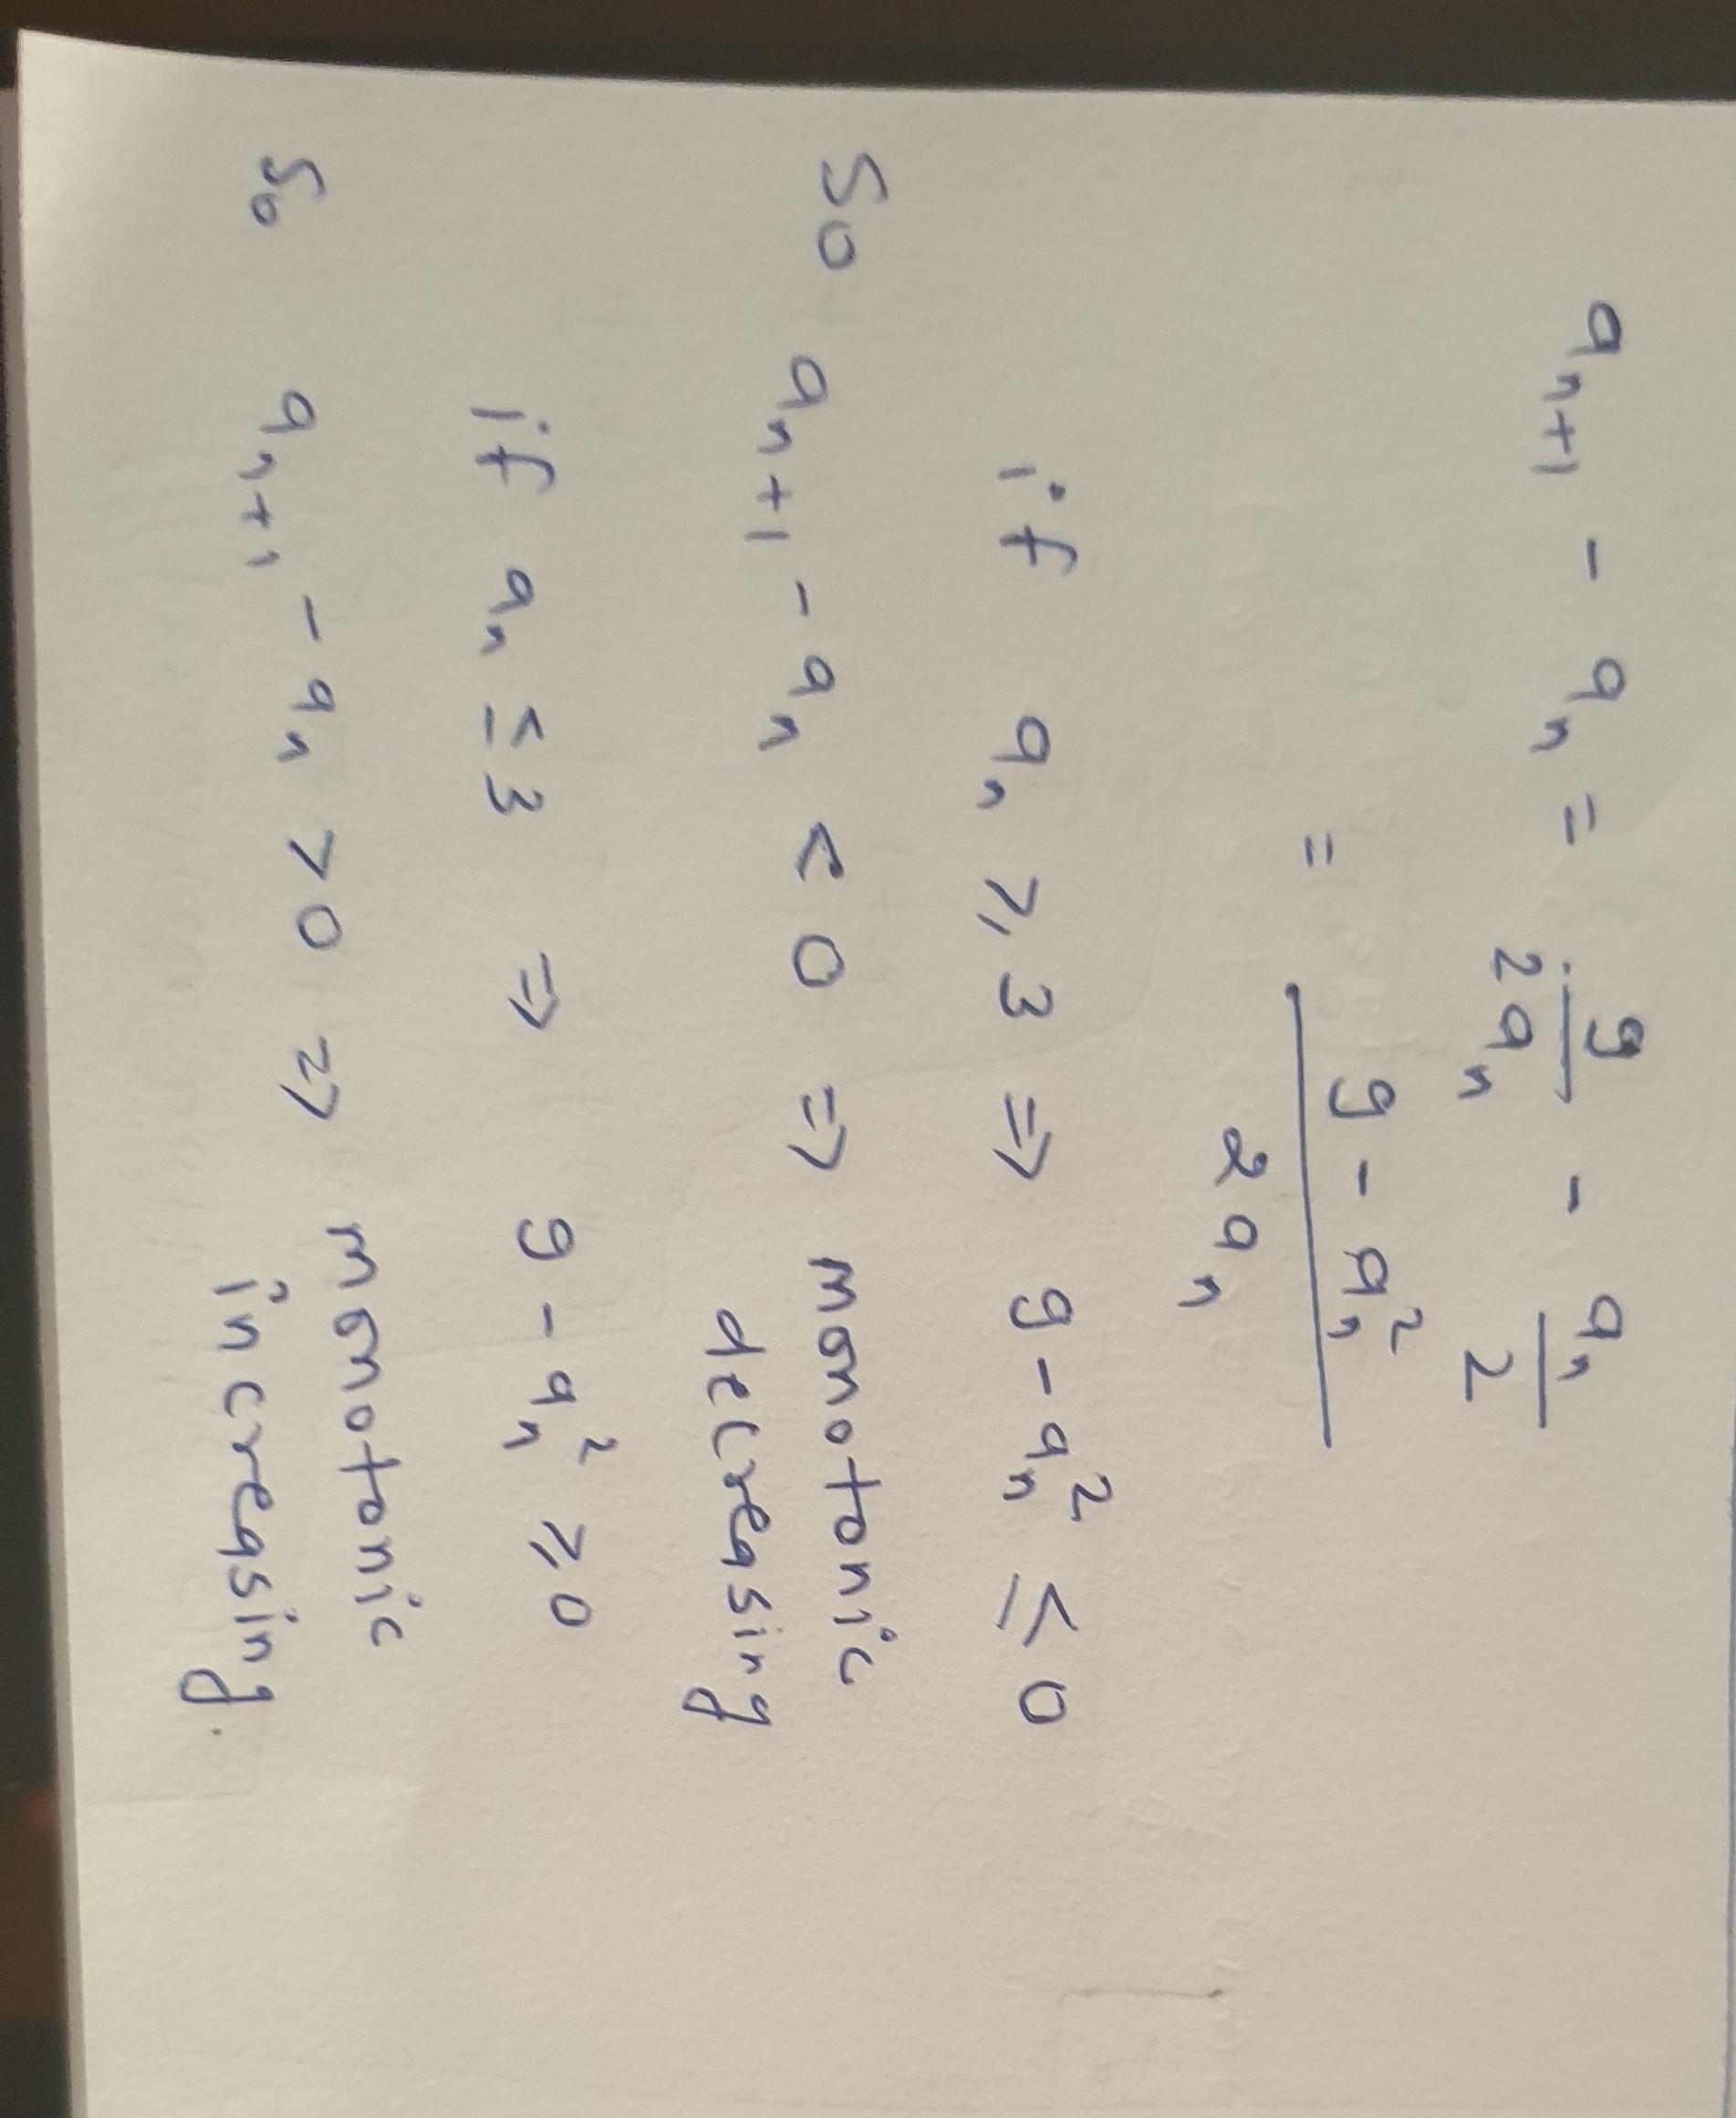 aₙ₊₁ - aₙ = 9/2aₙ - aₙ/2
= (9 - aₙ²)/2aₙ
if aₙ ≥ 3 ⇒ 9 - aₙ² ≤ 0
So aₙ₊₁ - aₙ < 0 ⇒ monotonic
decreasing
if aₙ ≤ 3 ⇒ 9 - aₙ² ≥ 0
So aₙ₊₁ - aₙ > 0 ⇒ monotonic
increasing.